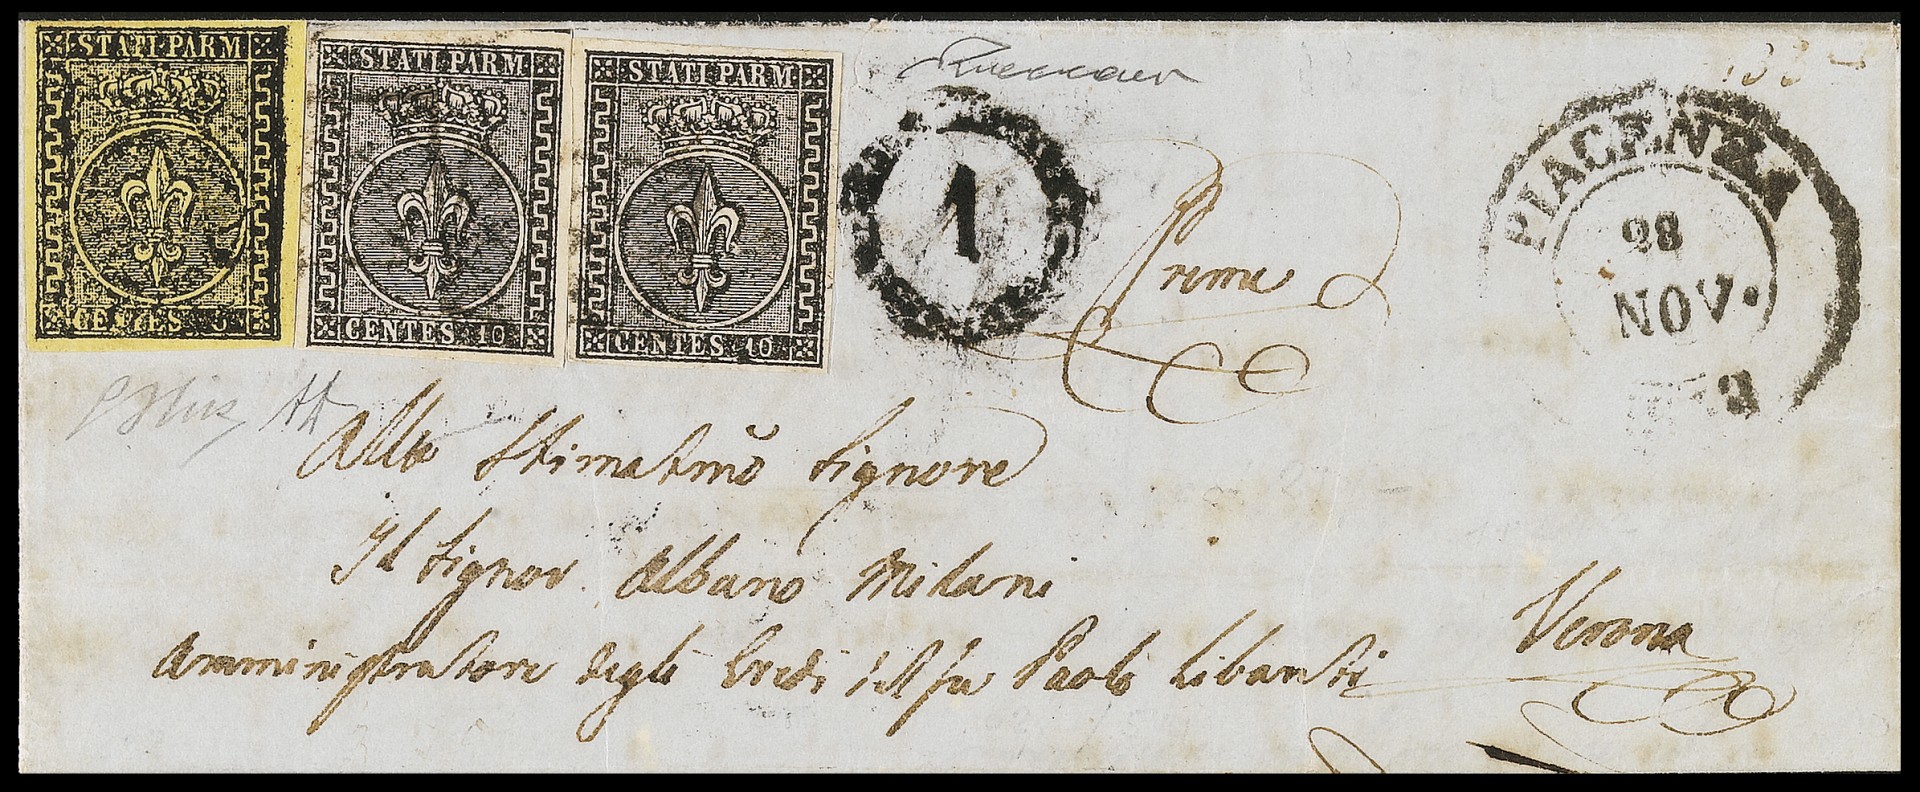 STATI PARM
CENTES. 5
STATI PARM
CENTES. 10
STATI PARM
CENTES. 10
1
Prima
PIACENZA
28
NOV.
3
Allo Stimatmo Signore
Il Signor Albano Milani
Amministratore degli Eredi del fu Paolo Libanti
Verona